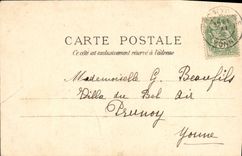 CARTE POSTALE
Ce côté est exclusivement réservé à l'adresse
Mademoiselle G. Beaufils
Villa du Bel Air
Prunoy
Yonne